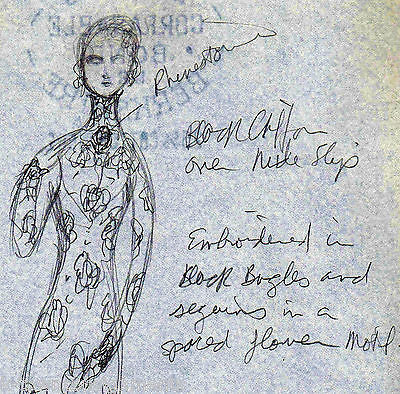 CORRASABLE
BOND
Rhinestones
Black Chiffon
over Nude Slip
Embroidered in
Black Bugles and
sequins in a
spaced flower Motif.